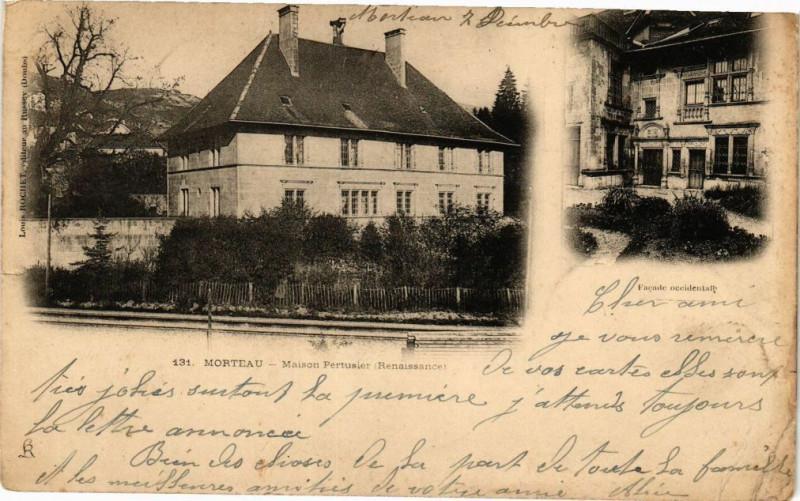 Morteau 2 Décembre
Louis ROCHET, éditeur au Russey (Doubs)
Façade occidentale
131. MORTEAU — Maison Pertusier (Renaissance)
Cher ami
je vous remercie
de vos cartes elles sont
très jolies surtout la première j'attends toujours
la lettre annoncée
Bien des choses de la part de toute la famille
et les meilleures amitiés de votre amie